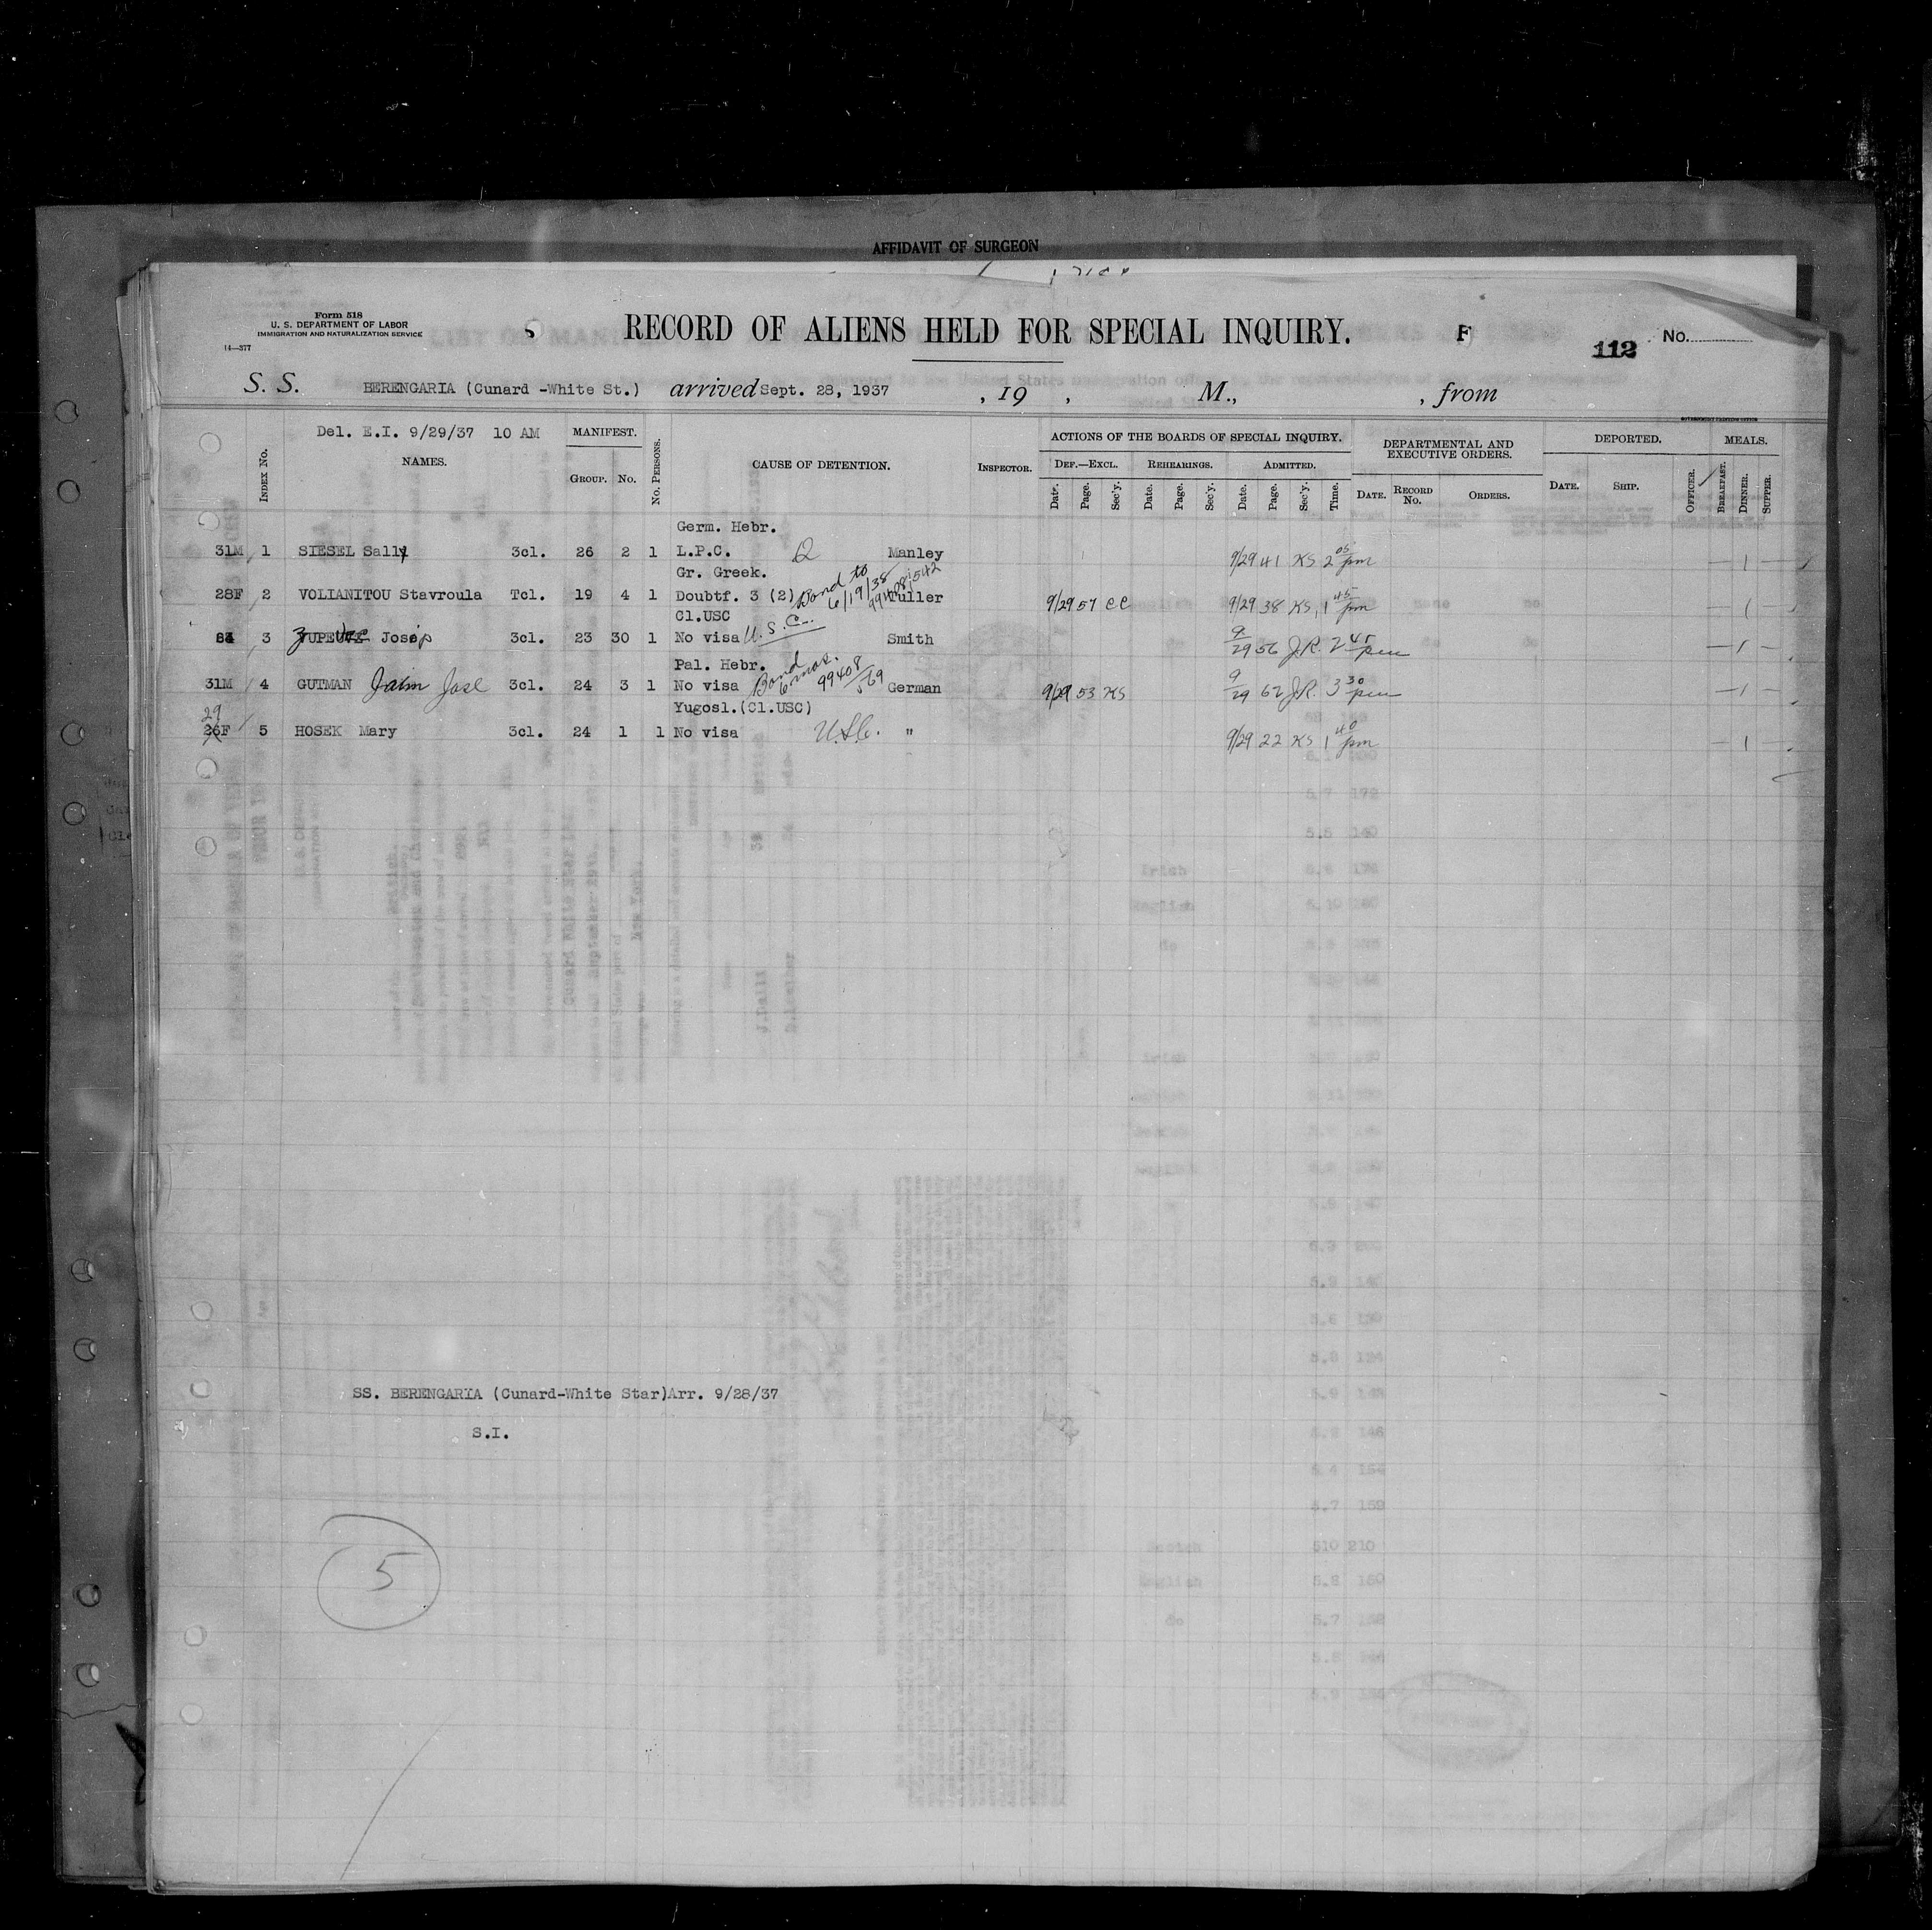 AFFIDAVIT OF SURGEON
Form 518
U. S. DEPARTMENT OF LABOR
IMMIGRATION AND NATURALIZATION SERVICE
14—377
S RECORD OF ALIENS HELD FOR SPECIAL INQUIRY. F
112 No.
S. S. BERENGARIA (Cunard -White St.) arrived Sept. 28, 1937 , 19 , M., , from
GOVERNMENT PRINTING OFFICE
Del. E.I. 9/29/37 10 AM
INDEX No. NAMES. MANIFEST. GROUP. No. No. PERSONS. CAUSE OF DETENTION. INSPECTOR.
ACTIONS OF THE BOARDS OF SPECIAL INQUIRY. DEPARTMENTAL AND EXECUTIVE ORDERS. DEPORTED. MEALS.
DEF.—EXCL. REHEARINGS. ADMITTED.
Date. Page. Sec'y. Date. Page. Sec'y. Date. Page. Sec'y. Time. DATE. RECORD No. ORDERS. DATE. SHIP. OFFICER. BREAKFAST. DINNER. SUPPER.
Germ. Hebr.
31M 1 SIESEL Sally 3cl. 26 2 1 L.P.C. Manley 9/29 41 KS 2 05 pm — 1 —
Gr. Greek.
28F 2 VOLIANITOU Stavroula Tcl. 19 4 1 Doubtf. 3 (2) Bond to 6/19/38 Fuller 9/29 57 CC 9/29 38 KS 1 45 pm — 1
Cl.USC
3 Josip 3cl. 23 30 1 No visa U.S.C. Smith 9/29 56 J.R. 2 45 pm — 1 —
Pal. Hebr.
31M 4 GUTMAN 3cl. 24 3 1 No visa Bond 6 mos. 99408/569 German 9/29 53 KS 9/29 62 J.R. 3 30 pm — 1 —
Yugosl.(Cl.USC)
29
26F 5 HOSEK Mary 3cl. 24 1 1 No visa U.S.C. " 9/29 22 KS 1 40 pm — 1
SS. BERENGARIA (Cunard-White Star)Arr. 9/28/37
S.I.
5